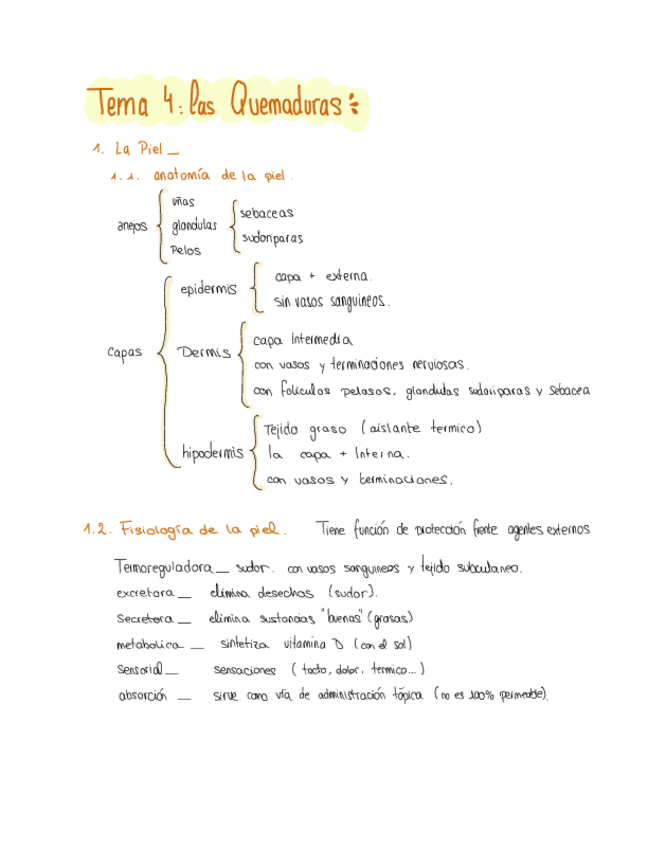 Tema 4: las Quemaduras:
1. La Piel_
1.1. anatomía de la piel.
anejos
uñas
glandulas
Pelos
sebaceas
sudoriparas
Capas
epidermis
capa + externa.
sin vasos sanguineos.
Dermis
capa Intermedia
con vasos y terminaciones nerviosas.
con foliculos pelosos, glandulas sudoriparas y sebacea
hipodermis
Tejido graso (aislante termico)
la capa + Interna.
con vasos y terminaciones.
1.2. Fisiología de la piel. Tiene función de protección frente agentes externos
Termoreguladora_ sudor. con vasos sanguineos y tejido subcutaneo.
excretora_ elimina desechos (sudor).
Secretora_ elimina sustancias "buenas" (grasas)
metabolica_ sintetiza vitamina D (con el sol)
Sensorial_ sensaciones (tacto, dolor, termico...)
absorción _ sirve como vía de administración tópica (no es 100% permeable).